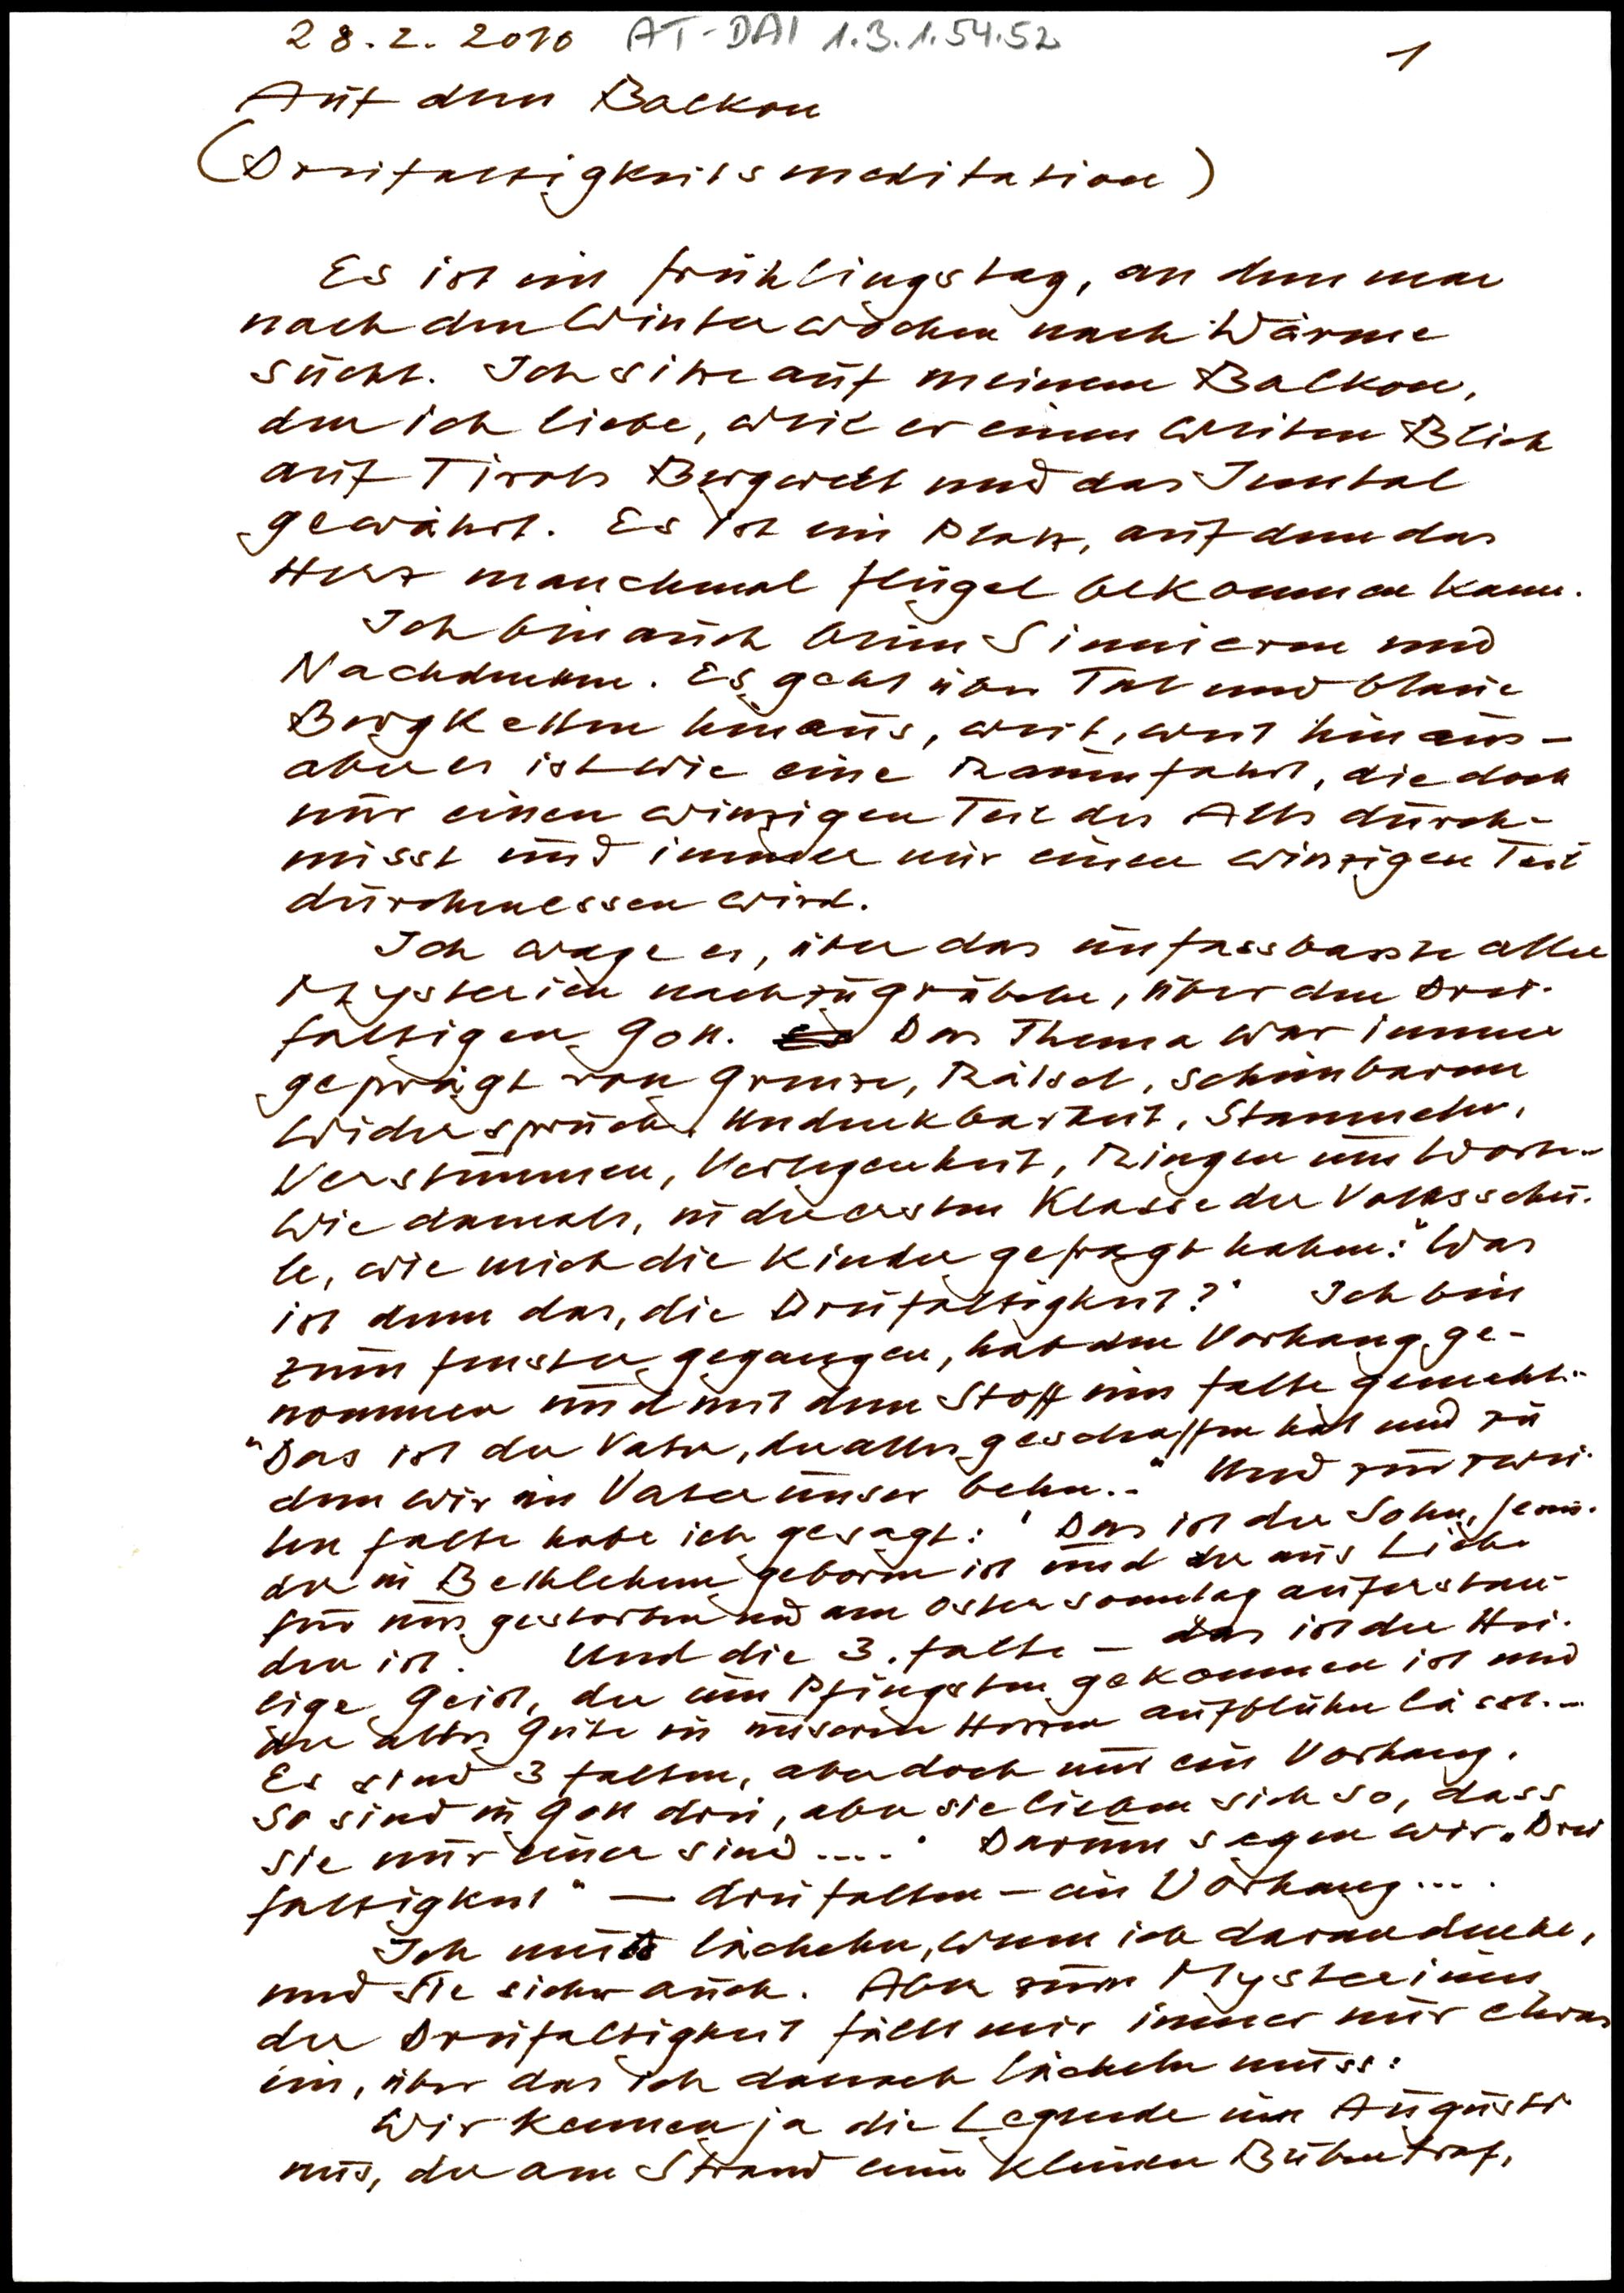 28.2.2010 AT-DAI 1.3.1.54.52
1
Auf dem Balkon
(Dreifaltigkeitsmeditation)
Es ist ein Frühlingstag, an dem man
nach den Winterwochen nach Wärme
sucht. Ich sitze auf meinem Balkon,
den ich liebe, weil er einen weiten Blick
auf Tirols Bergwelt und das Inntal
gewährt. Es ist ein Platz, auf dem das
Herz manchmal Flügel bekommen kann.
Ich bin auch beim Sinnieren und
Nachdenken. Es geht über Tal und blaue
Bergketten hinaus, weit, weit hinaus -
aber es ist wie eine Raumfahrt, die doch
nur einen winzigen Teil des Alls durch-
misst und immer nur einen winzigen Teil
durchmessen wird.
Ich wage es, über das unfassbarste aller
Mysterien nachzugrübeln, über den Drei-
faltigen Gott. Das Thema war immer
geprägt von Grenze, Rätsel, scheinbarem
Widerspruch, Undenkbarkeit, Stammeln,
Verstummen, Verlegenheit, Ringen um Worte..
Wie damals, in der ersten Klasse der Volksschu-
le, wie mich die Kinder gefragt haben: "Was
ist denn das, die Dreifaltigkeit?" Ich bin
zum Fenster gegangen, hab den Vorhang ge-
nommen und mit dem Stoff eine Falte gemacht..
"Das ist der Vater, der alles geschaffen hat und zu
dem wir im Vater unser beten.." Und zur zwei-
ten Falte habe ich gesagt: "Das ist der Sohn, Jesus.
der in Bethlehem geboren ist und der aus Liebe
für uns gestorben und am Ostersonntag auferstan-
den ist. Und die 3. Falte - das ist der Hei-
lige Geist, der um Pfingsten gekommen ist und
der alles Gute in unseren Herzen aufblühen lässt...
Es sind 3 Falten, aber doch nur ein Vorhang.
So sind in Gott drei, aber sie lieben sich so, dass
sie nur einer sind ...." Darum sagen wir "Drei
faltigkeit" — drei Falten - ein Vorhang....
Ich muss lächeln, wenn ich daran denke,
und Sie sicher auch. Aber zum Mysterium
der Dreifaltigkeit fällt mir immer nur etwas
ein, über das ich danach lächeln muss:
Wir kennen ja die Legende von Augusti-
nus, der am Strand einen kleinen Buben traf,